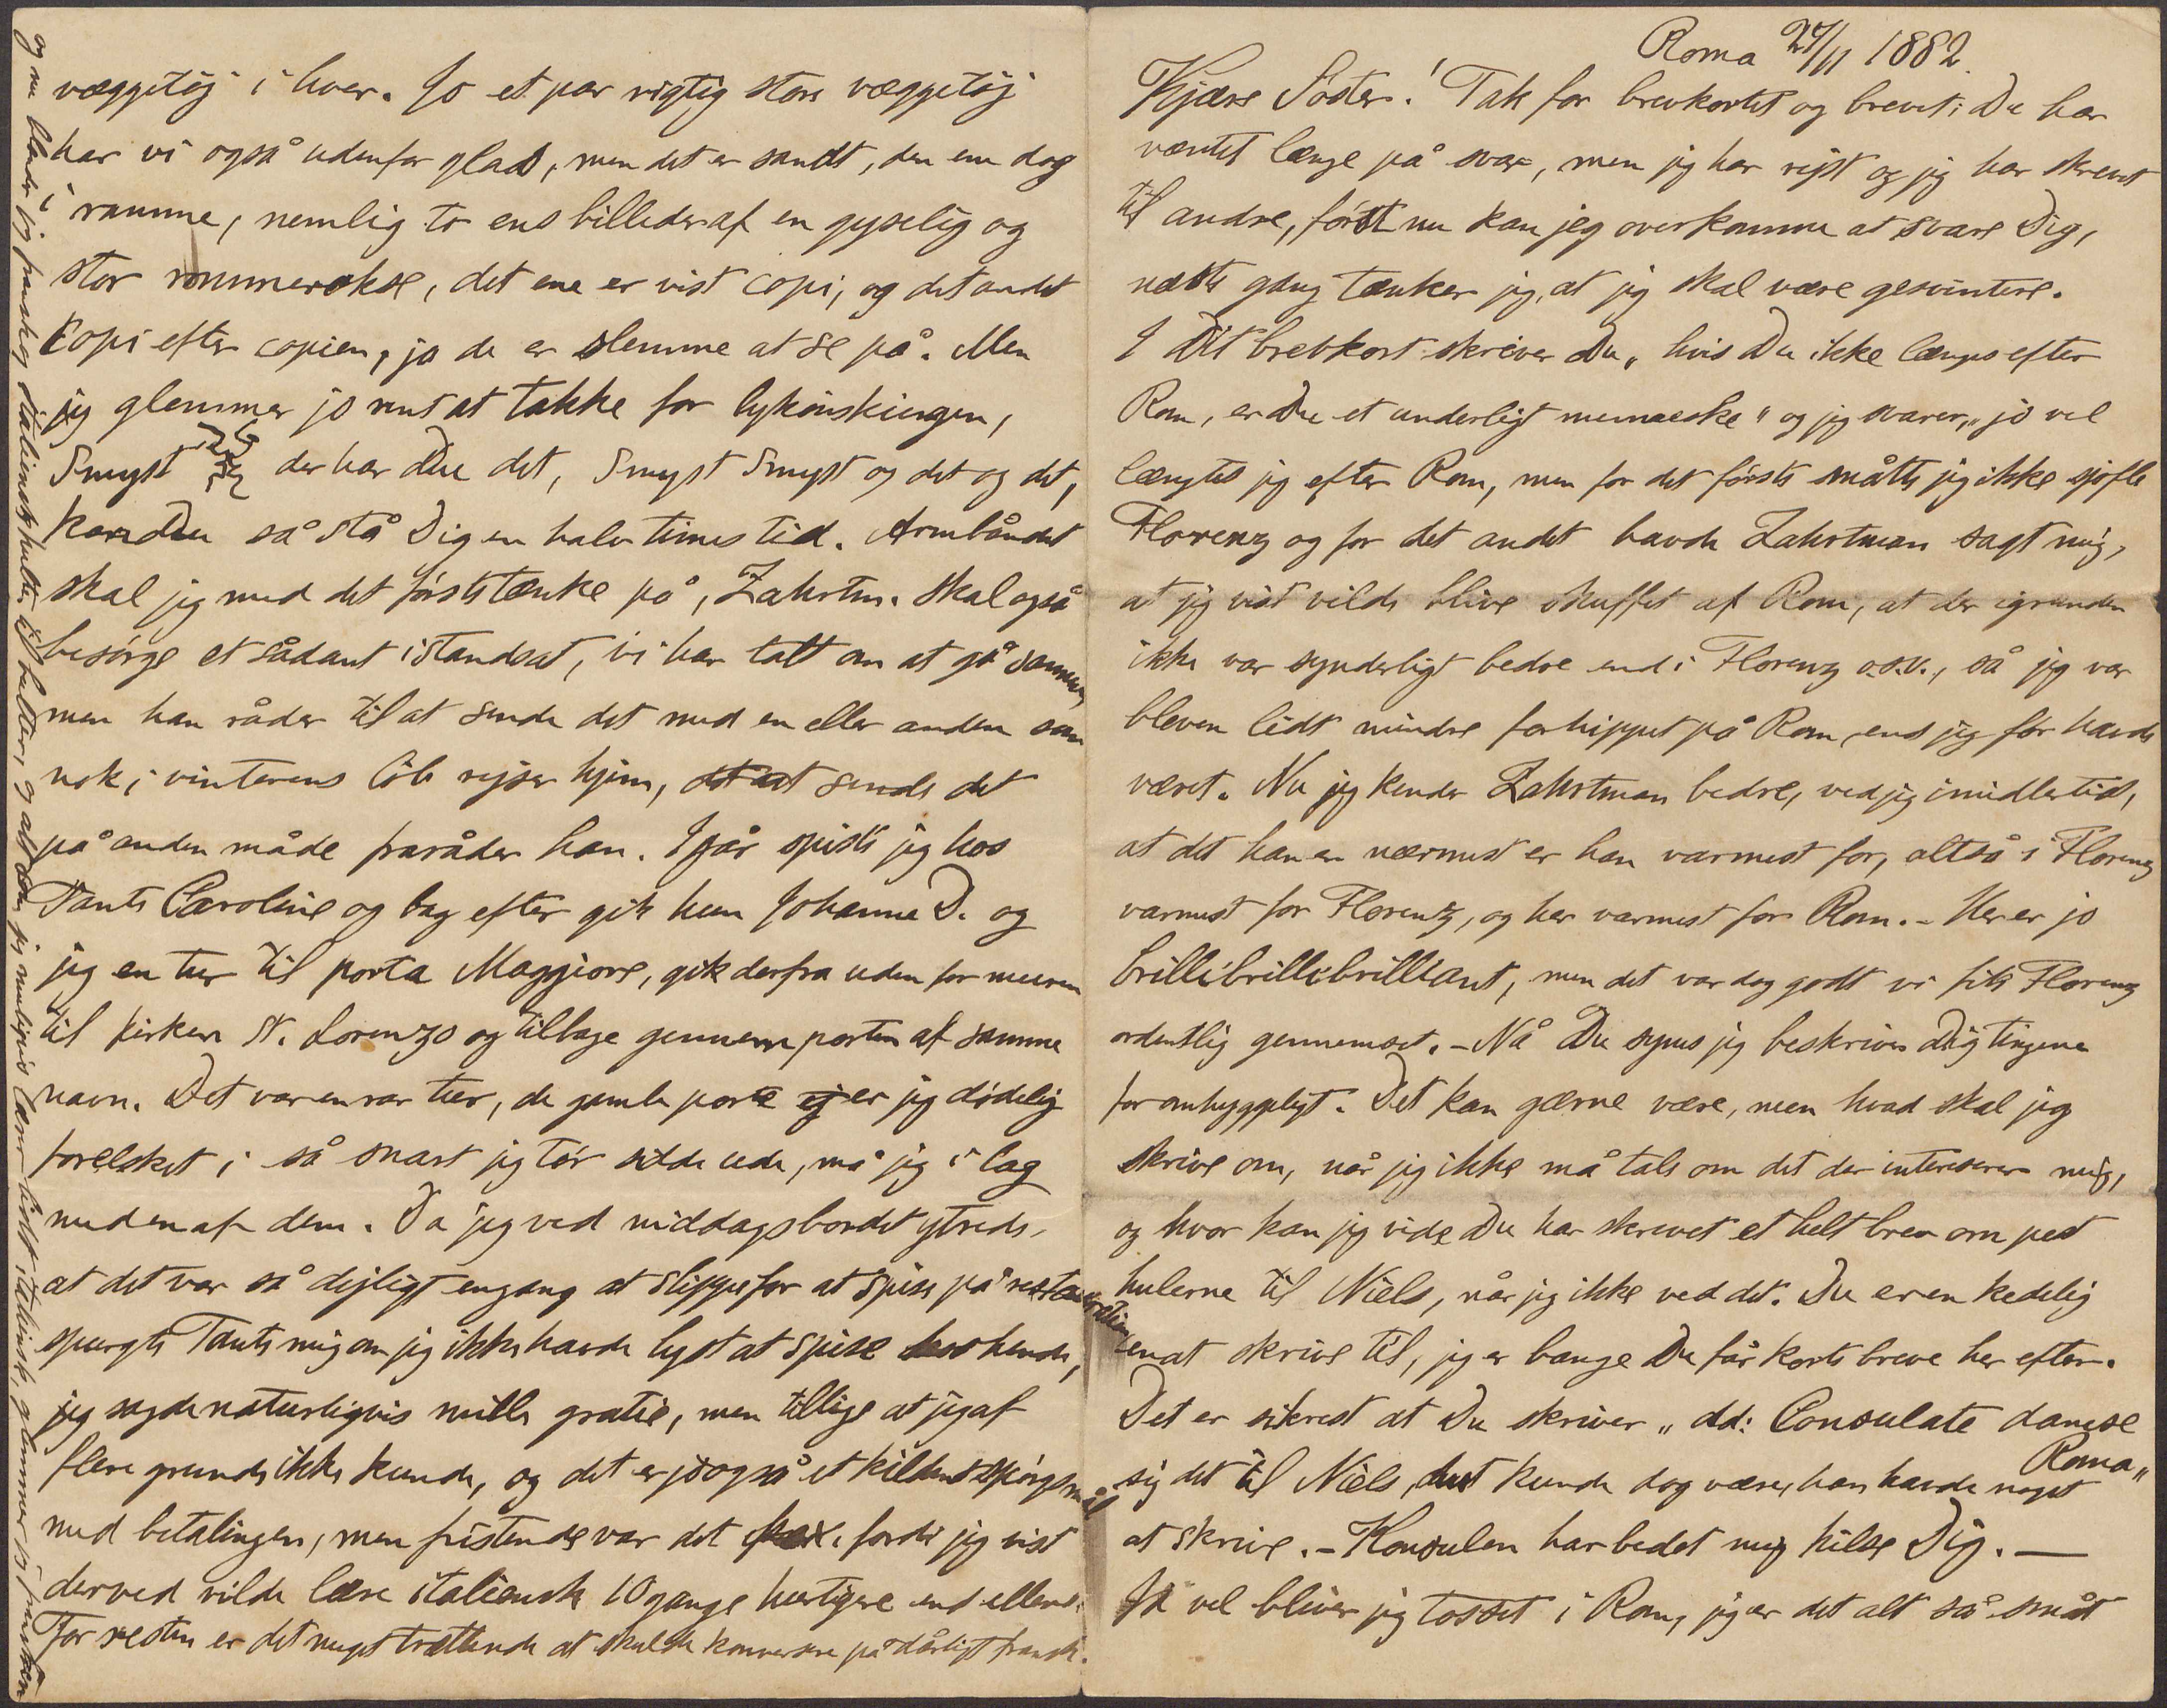 Roma 27/11 1882.
Kjære Søster! Tak for brevkortet og brevet; Du har
ventet længe på svar, men jeg har rejst og jeg har skrevet
til andre, først nu kan jeg overkomme at svare Dig,
næste gang tænker jeg, at jeg skal være gesvintere.
I Dit brevkort skriver Du „hvis Du ikke længes efter
Rom, er Du et underligt menneske" og jeg svarer, „jo vel
længtes jeg efter Rom, men for det første måtte jeg ikke sjofle
Florenz og for det andet havde Zahrtman sagt mig,
at jeg vist vilde blive skuffet af Rom, at der igrunden
ikke var synderligt bedre end i Florenz o.s.v., så jeg var
bleven lidt mindre forhippet på Rom, end jeg før havde
været. Nu jeg kender Zahrtman bedre, ved jeg imidlertid,
at det han er nærmest er han varmest for, altså i Florenz
varmest for Florentz, og her varmest for Rom. – Her er jo
brillibrillibrilliant, men det var dog godt vi fik Florenz
ordentlig gennemset. – Nå Du synes jeg beskriver Dig tingene
for omhyggeligt. Det kan gærne være, men hvad skal jeg
skrive om, når jeg ikke må tale om det der interesserer mig,
og hvor kan jeg vide Du har skrevet et helt brev om pest
hulerne til Niels, når jeg ikke ved det. Du er en kedelig
en at skrive til, jeg er bange Du får korte breve her efter.
Det er sikrest at Du skriver „dd: Consulate danese
Roma„
sig det til Niels, det kunde dog være, han havde noget
at skrive. – Konsulen har bedet mig hilse Dig. —
Ja vel bliver jeg tosset i Rom, jeg er det alt så småt
væggetøj i hver. Jo et par rigtig store væggetøj
har vi også udenfor glas, men det er sandt, den ene dog
i ramme, nemlig to ens billeder af en gyselig og
stor rommerokse, det ene er vist copi, og det andet
copi efter copien, ja de er slemme at se på. Men
jeg glemmer jo rent at takke for lykønskningen,
Smyst der har Du det, Smyst Smyst og det og det,
kan Du så stå Dig en halv times tid. Armbåndet
skal jeg med det første tænke på, Zahrtm. skal også
besørge et sådant istandsat, vi har talt om at gå sammen,
men han råder til at sende det med en eller anden som
nok i vinterens løb rejser hjem, at sende det
på anden måde fraråder han. Igår spiste jeg hos
Tante Caroline og bag efter gik hun Johanne D. og
jeg en tur til porta Maggiore, gik derfra uden for muren
til kirken St. Lorenzo og tilbage gennem porten af samme
navn. Det var en rar tur, de gamle porte er jeg dødelig
forelsket i så snart jeg tør sidde ude, må jeg i lag
med en af dem. Da jeg ved middagsbordet ytrede,
at det var så dejligt engang at slippe for at spise på restauration
spurgte Tante mig om jeg ikke havde lyst at spise hos hende,
jeg sagde naturligvis mille gratie, men tillige at jeg af
flere grunde ikke kunde, og det er jo også et kildent spørgsmål
med betalingen, men fristende var det fordi jeg vist
derved vilde lære italiensk 10 gange hurtigere end ellers.
For resten er det meget trættende at skulde konversere på dårligt fransk.
og nu blander jeg fransk og italiensk hulter til bulter, og alt som jeg muligvis lærer lidt italiensk, glemmer jeg fransken